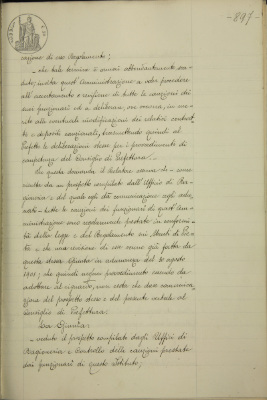 -897-
cazione di esso Regolamento;
- che tale termine è ormai abbondantemente sca-
duto; invita quest'Amministrazione a voler procedere
all'accertamento e verifica di tutte le cauzioni dei
suoi funzionari ed a deliberare, ove occorra, in me-
rito alle eventuali modificazioni dei relativi contrat-
ti e depositi cauzionali, trasmettendo quindi al
Prefetto le deliberazioni stesse per i provvedimenti di
competenza del Consiglio di Prefettura.
che da un prospetto compilato dall'Ufficio di Ra-
gioneria e del quale egli dà comunicazione agli adu-
nati - tutte le cauzioni dei funzionari di quest'Am-
ministrazione sono regolarmente prestate in conformi-
tà della legge e del Regolamento sui Monti di Pie-
tà e che una revisione di esse venne già fatta da
questa stessa Giunta in adunanza del 30 agosto
che quindi nessun provvedimento essendo da
adottare al riguardo, non resta che dare comunica-
zione del prospetto stesso e del presente verbale al
Consiglio di Prefettura.
La Giunta:
- veduto il prospetto compilato dagli Uffici di
Ragioneria e Controllo delle cauzioni prestate
dai funzionari di questo Istituto;